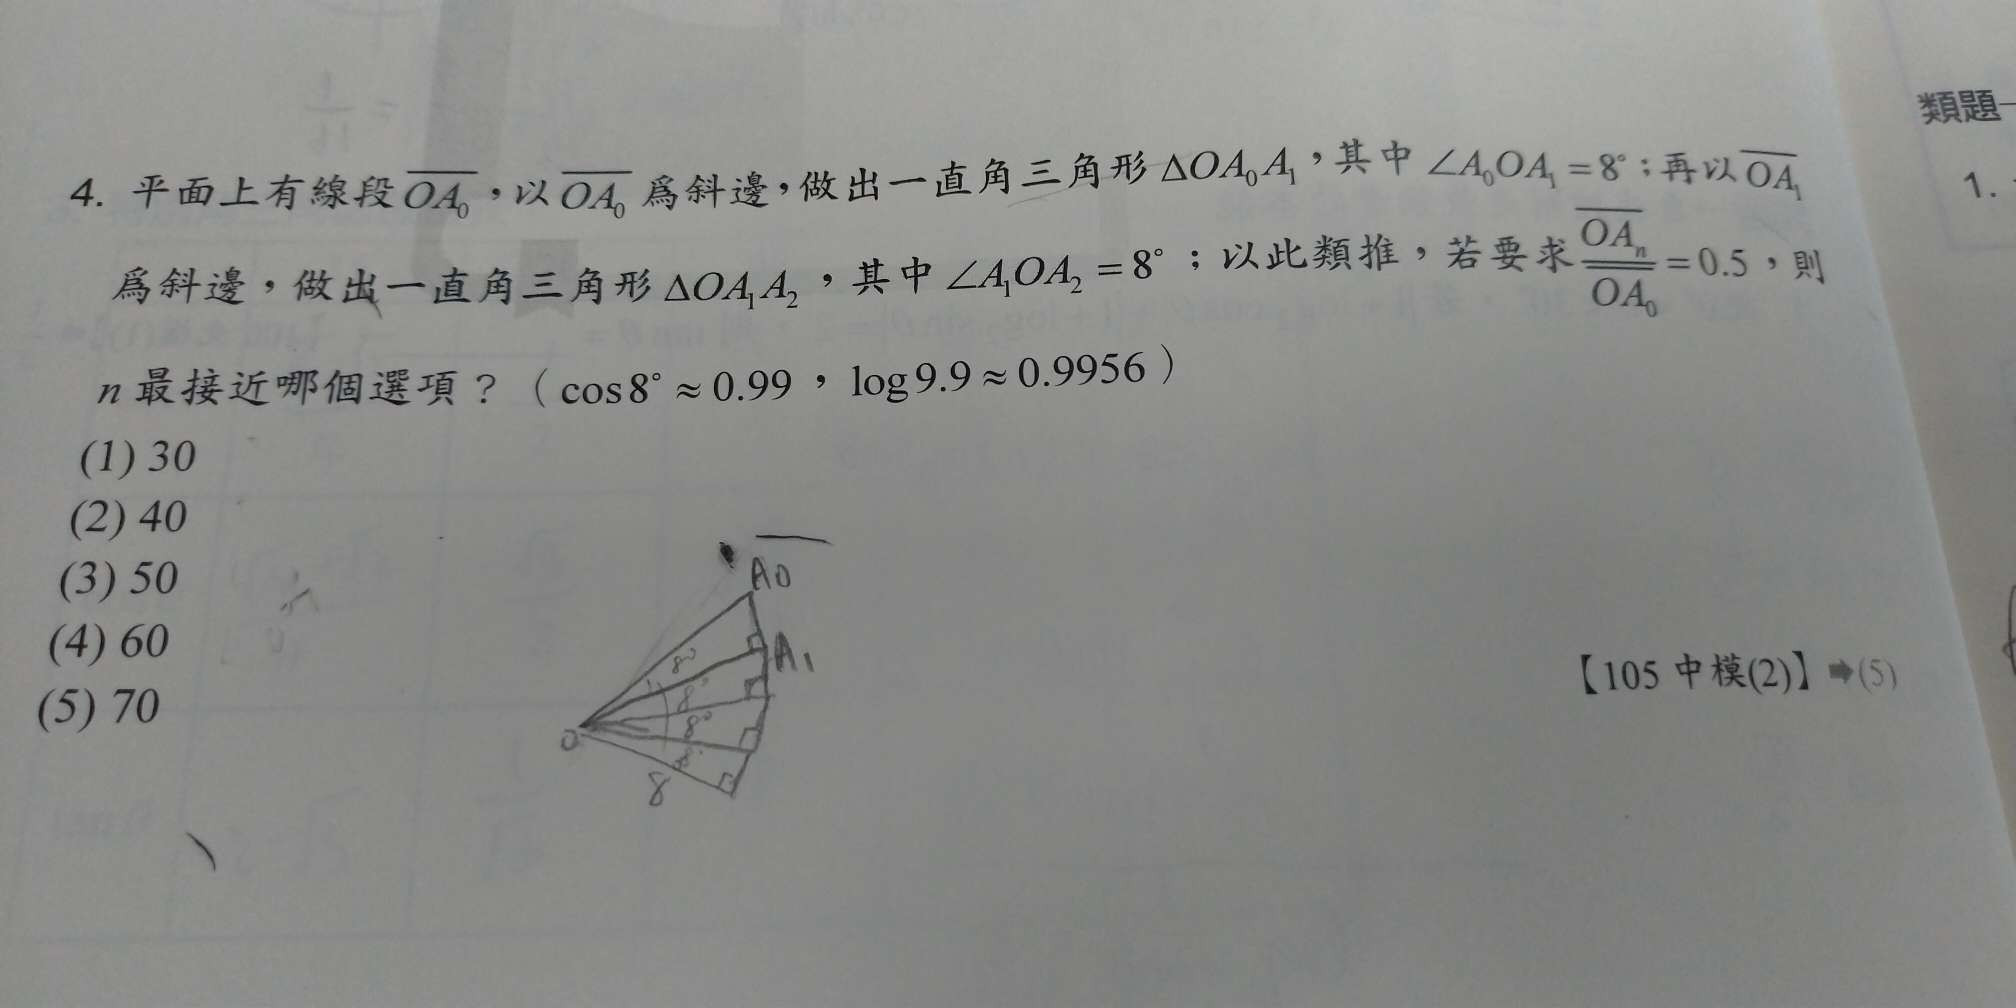 類題一
1.
4. 平面上有線段 OA₀，以 OA₀ 爲斜邊，做出一直角三角形 ΔOA₀A₁，其中 ∠A₀OA₁ = 8°；再以 OA₁
爲斜邊，做出一直角三角形 ΔOA₁A₂，其中 ∠A₁OA₂ = 8°；以此類推，若要求 OAₙ/OA₀ = 0.5，則
n 最接近哪個選項？（cos8° ≈ 0.99，log9.9 ≈ 0.9956）
(1) 30
(2) 40
(3) 50
(4) 60
(5) 70
A0
A1
8°
8°
8°
8°
O
8
【105 中模(2)】➡(5)